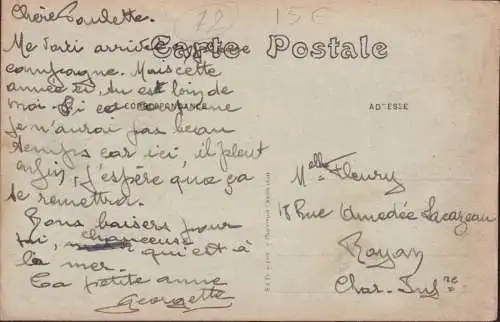 Chère Paulette.
72
15€
Carte Postale
Me voici arrivée
campagne. Mais cette
année ci, tu es loin de
moi. Si ca
CORRESPONDANCE
ADRESSE
je n'aurai pas beau
temps car ici, il pleut
enfin, j'espère que ça
se remettra.
Bons baisers pour
toi, chanceuse
qui est à
la mer.
Ta petite amie
Georgette
Melle Fleury
18 Rue Amédée Lacazeau
Royan
Char. Infre